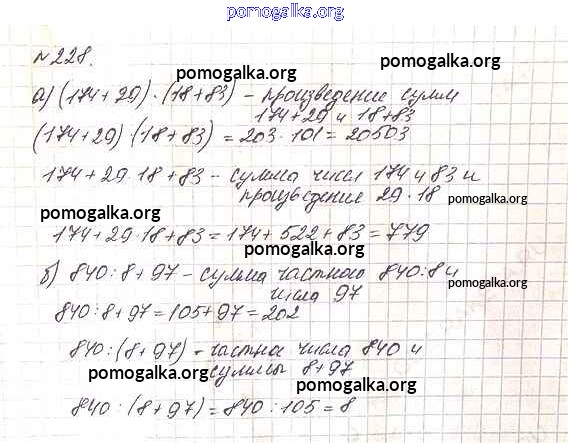 pomogalka.org
№228.
pomogalka.org
pomogalka.org
а) (174+29)·(18+83) – произведение сумм
174+29 и 18+83
(174+29)·(18+83) = 203·101 = 20503
174+29·18+83 – сумма чисел 174 и 83 и
произведение 29·18
pomogalka.org
pomogalka.org
174+29·18+83 = 174+522+83 = 779
pomogalka.org
б) 840:8+97 – сумма частного 840:8 и
числа 97
pomogalka.org
840:8+97 = 105+97 = 202
840:(8+97) – частное числа 840 и
суммы 8+97
pomogalka.org
pomogalka.org
840:(8+97) = 840:105 = 8